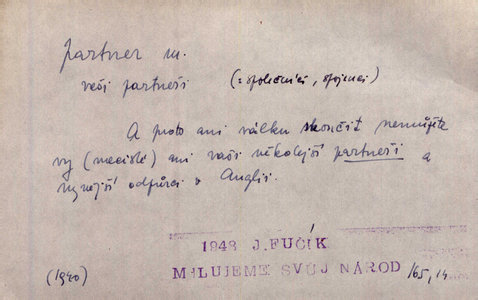 partner m.
vaši partneři (= společníci, spojenci)
A proto ani válku skončit nemůžete
vy (nacisté) ani vaši někdejší partneři a
nynější odpůrci v Anglii.
1948 J.FUČÍK
MILUJEME SVŮJ NÁROD
(1940) 165,14